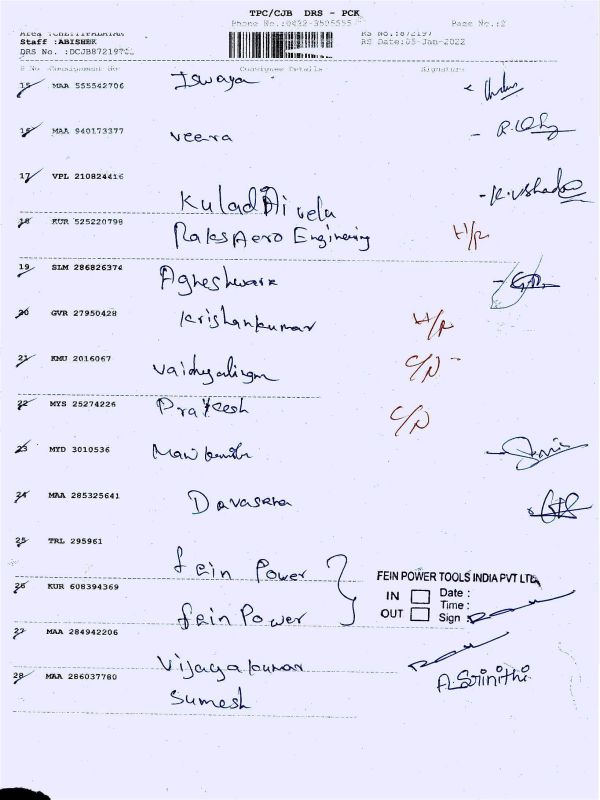 TPC/CJB DRS - PCK
Phone No.:0422-3505555 Page No.:2
Staff :ABISHEK RS Date:05-Jan-2022
S No Consignment No Consignee Details Signature
15 MAA 555542706 Iswarya
16 MAA 940173377 Veera
17 VPL 210824416 Kuladhi velu
18 KUR 525220798 RaksAero Enginering H/R
19 SLM 286826374 Agneshwara
20 GVR 27950428 Krishankumar H/R
21 KMU 2016067 C/N
22 MYS 25274226 Prateesh C/N
23 MYD 3010536
24 MAA 285325641 Davasena
25 TRL 295961 fein Power
FEIN POWER TOOLS INDIA PVT LTD,
26 KUR 608394369 fein Power
IN Date :
Time :
OUT Sign
27 MAA 284942206 Vijayakumar
28 MAA 286037780 Sumesh A.Srinithi